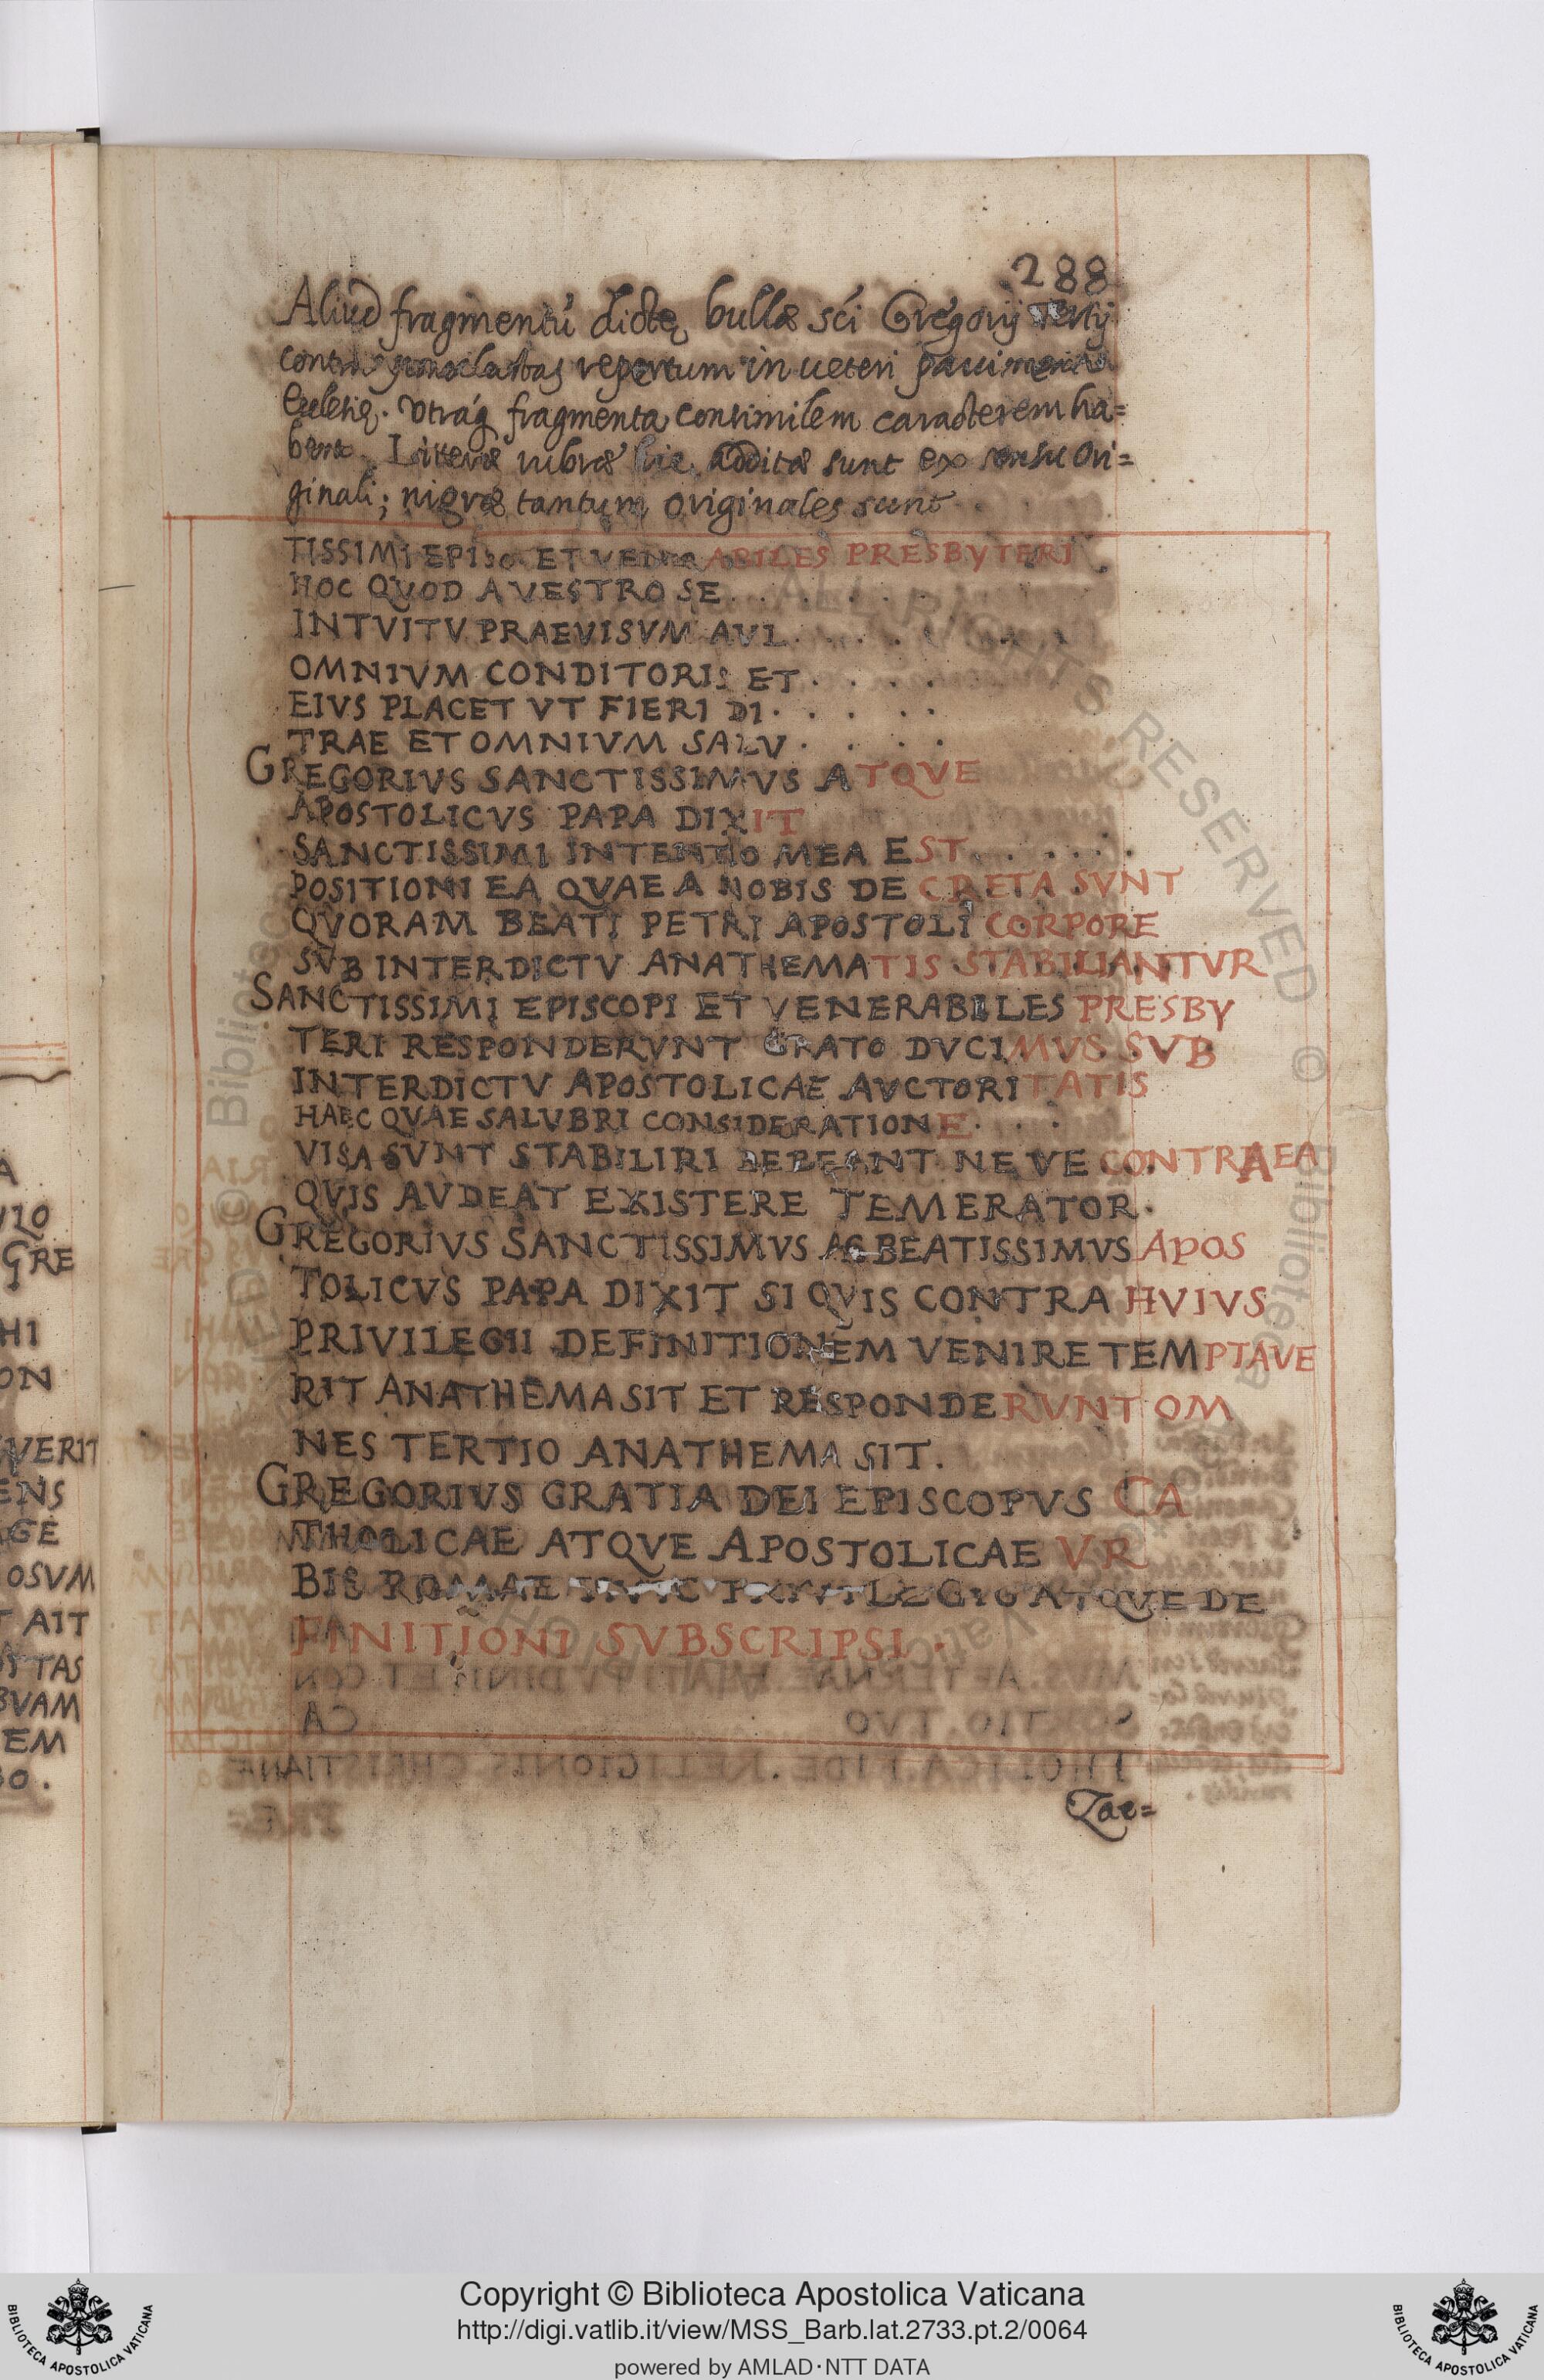 288
Aliud fragmentũ dictę bullæ sci Gregorij Tertij
contra yconoclastas repertum in ueteri pauimento
Ecclesię. Utráq fragmenta consimilem caracterem ha=
bent. Litteræ rubræ hic additæ sunt ex sensu ori=
ginali; nigræ tantum originales sunt
TISSIMI EPISC. ET VENERABILES PRESBYTERI
HOC QUOD A VESTRO SE . . . . . .
INTVITV PRAEVISVM AVL . . . . . . .
OMNIVM CONDITORIS ET . . . .
EIVS PLACET VT FIERI DI . . . . .
TRAE ET OMNIVM SALV . . . .
GREGORIVS SANCTISSIMVS ATQVE
APOSTOLICVS PAPA DIXIT
SANCTISSIMI INTENTIO MEA EST . . . . .
POSITIONI EA QVAE A NOBIS DE CRETA SVNT
QVORAM BEATI PETRI APOSTOLI CORPORE
SVB INTERDICTV ANATHEMATIS STABILIANTVR
SANCTISSIMI EPISCOPI ET VENERABILES PRESBY
TERI RESPONDERVNT GRATO DVCIMVS SVB
INTERDICTV APOSTOLICAE AVCTORITATIS
HAEC QVAE SALVBRI CONSIDERATIONE . . .
VISA SVNT STABILIRI DEBEANT NE VE CONTRA EA
QVIS AVDEAT EXISTERE TEMERATOR.
GREGORIVS SANCTISSIMVS AC BEATISSIMVS APOS
TOLICVS PAPA DIXIT SI QVIS CONTRA HVIVS
PRIVILEGII DEFINITIONEM VENIRE TEMPTAVE
RIT ANATHEMA SIT ET RESPONDERVNT OM
NES TERTIO ANATHEMA SIT.
GREGORIVS GRATIA DEI EPISCOPVS CA
THOLICAE ATQVE APOSTOLICAE VR
BIS ROMAE HVIC PRIVILEGIO ATQVE DE
FINITIONI SVBSCRIPSI .
Zac=
A
VLO
GRE
HI
ON
VERIT
ENS
AGE
OSVM
T AIT
TAS
BVAM
EM
BO.
Copyright © Biblioteca Apostolica Vaticana
http://digi.vatlib.it/view/MSS_Barb.lat.2733.pt.2/0064
powered by AMLAD·NTT DATA
BIBLIOTECA APOSTOLICA VATICANA
BIBLIOTECA APOSTOLICA VATICANA